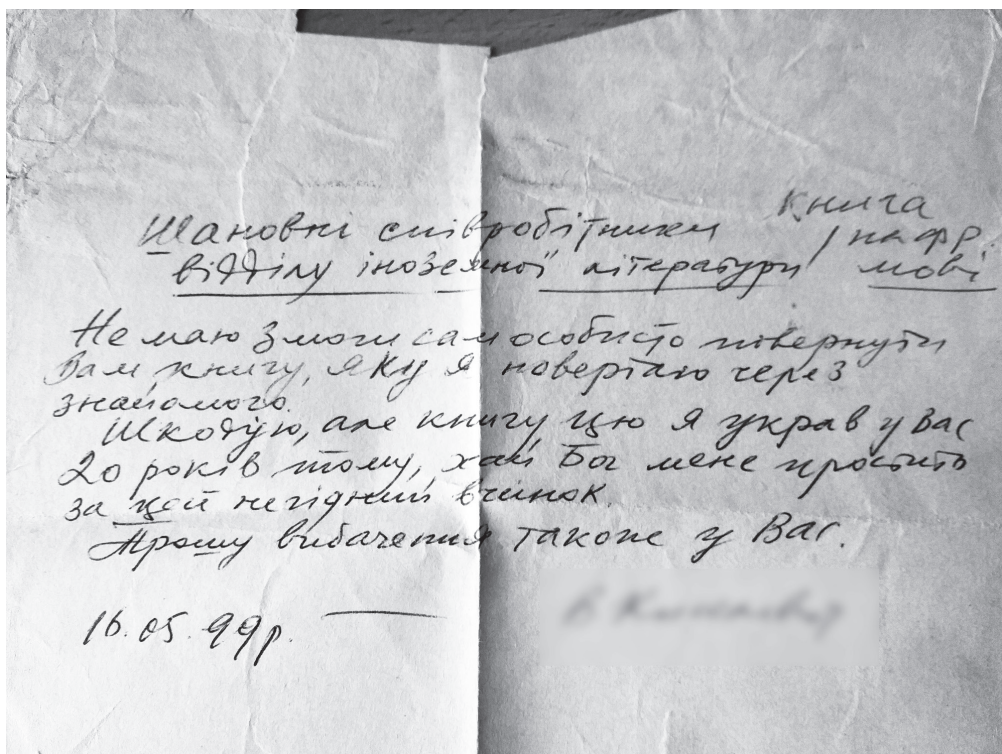 Книга
Шановні співробітники / на фр.
відділу іноземної літератури мові
Не маю змоги сам особисто повернути
Вам книгу, яку я повертаю через
знайомого.
Шкодую, але книгу цю я украв у Вас
20 років тому, хай Бог мене простить
за цей негідний вчинок.
Прошу вибачення також у Вас.
16.05.99р.